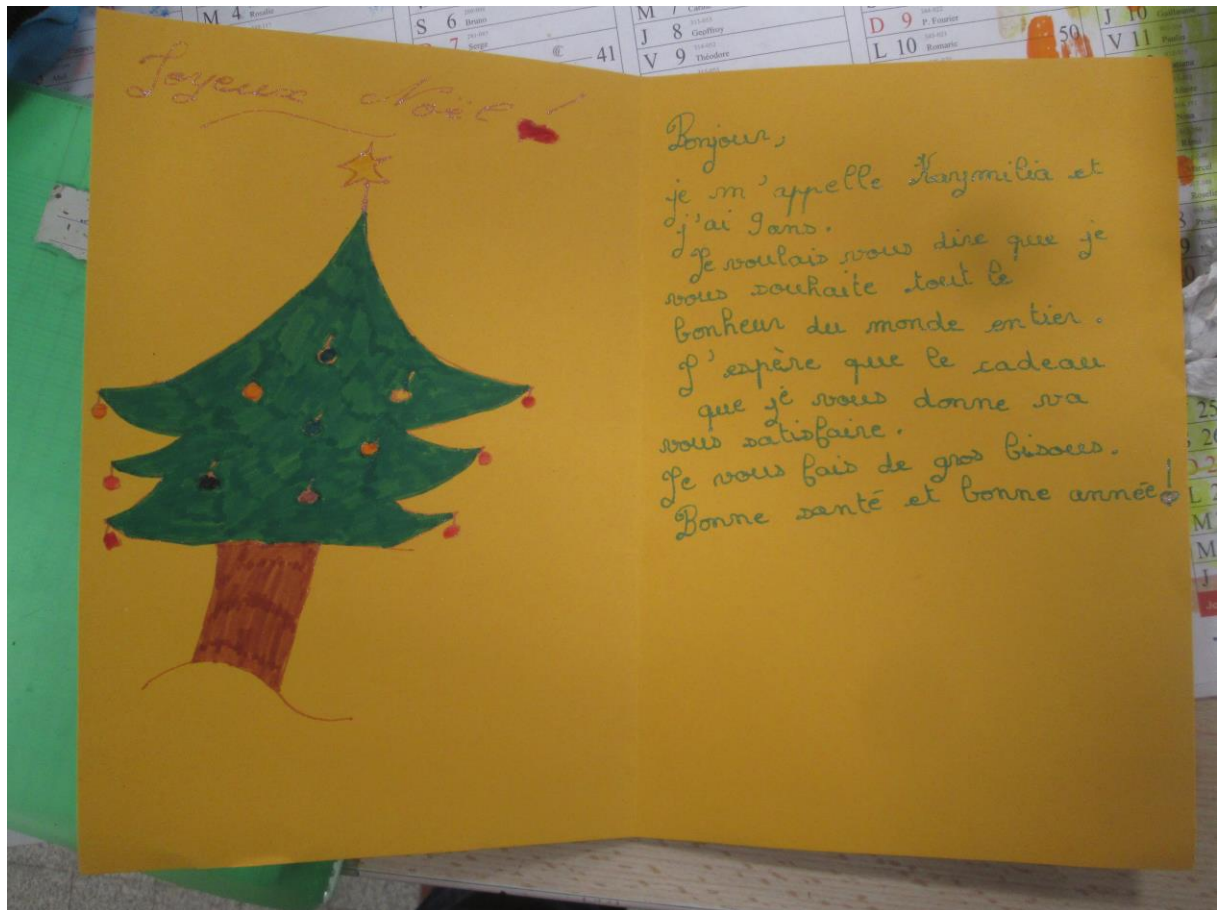 M 4 Rosalie
S 6 Bruno
7 Serge
41
M 7
J 8 Geoffroy
V 9 Théodore
D 9 P. Fourier
L 10 Romaric
50
J 10
V 11
Joyeux Noël !
Bonjour,
je m'appelle Kaymilia et
j'ai 9 ans.
Je voulais vous dire que je
vous souhaite tout le
bonheur du monde entier.
J'espère que le cadeau
que je vous donne va
vous satisfaire.
Je vous fais de gros bisous.
Bonne santé et bonne année !
25
26
L 2
M
M
J